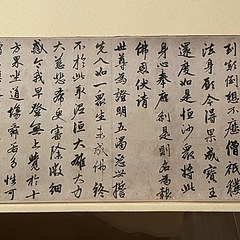 刧顛倒想不歷僧祇獲
法身願今得果成寶王
還度如是恒沙衆將此
身心奉塵刹是則名為報
佛恩伏請
世尊為證明五濁惡世誓
先入如一衆生未成佛終
不於此取泥洹大雄大力
大慈悲希更審除微細
惑令我早登無上覺於十
方界坐道場舜若多性可